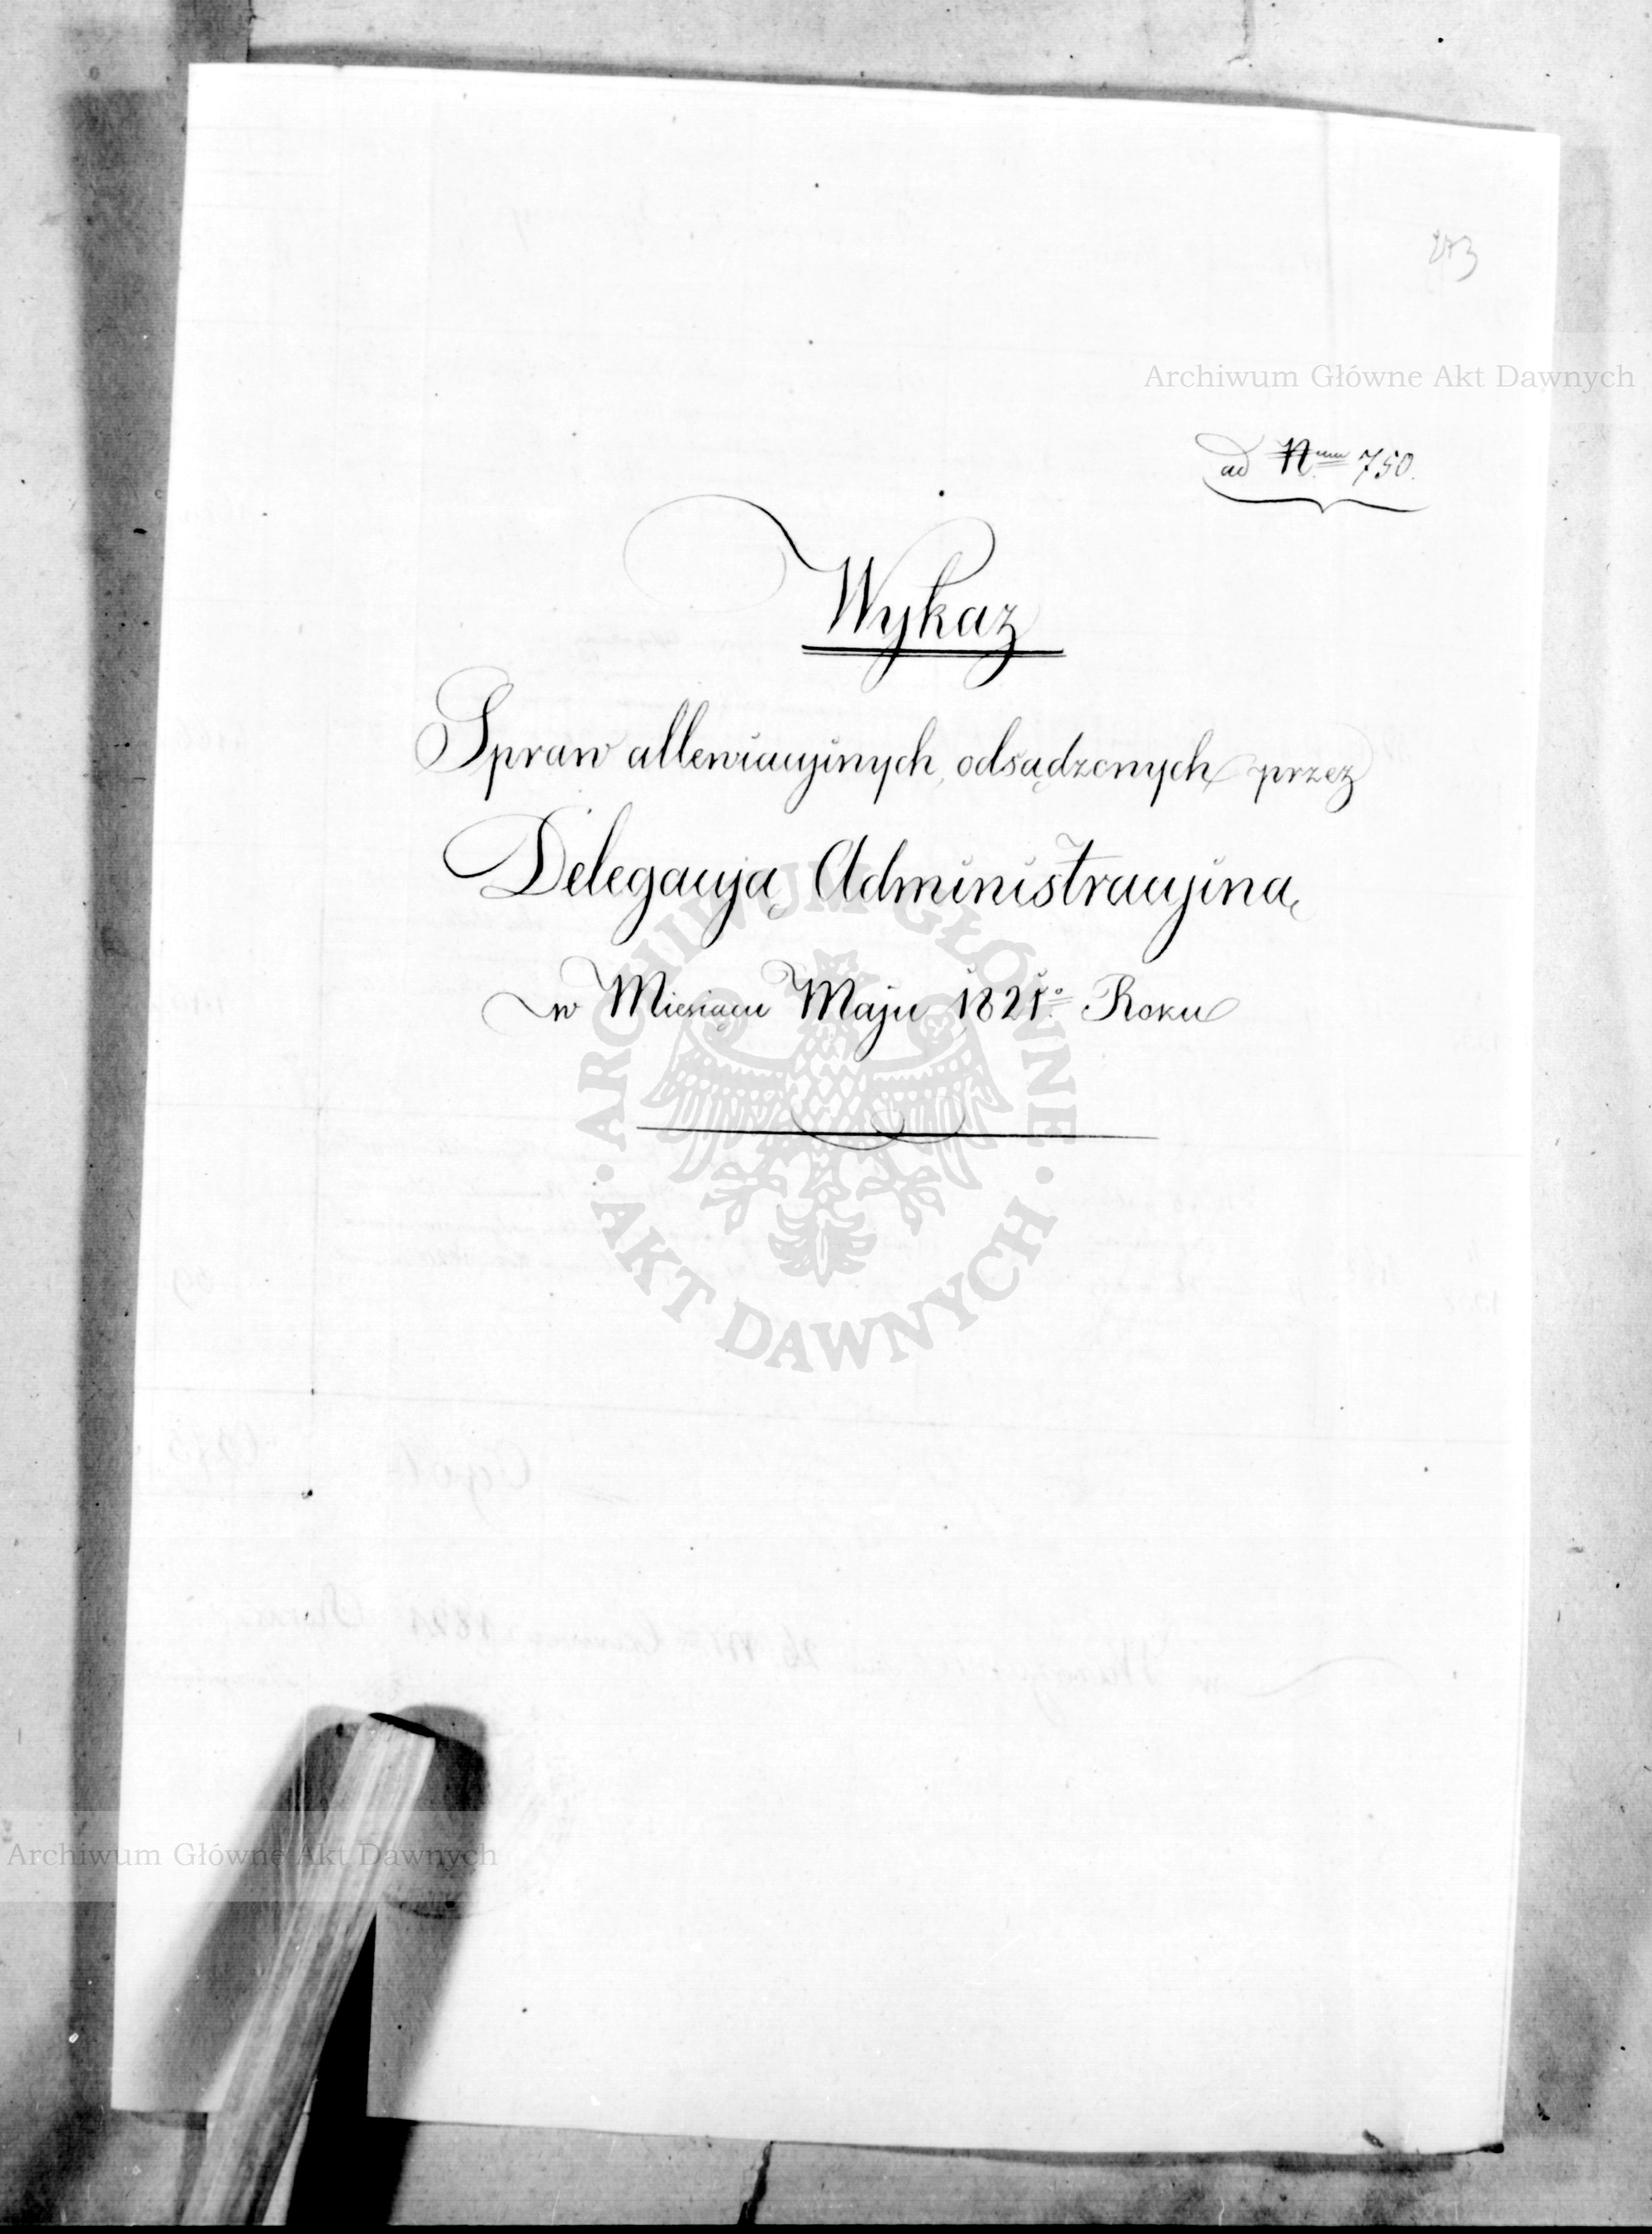 273
Archiwum Główne Akt Dawnych
ad Nrum 750.
Wykaz
Spraw allewiacyinych, odsądzonych przez
Delegacyją Administracyiną
w Miesiącu Maju 1821o Roku
ARCHIWUM GŁÓWNE
· AKT DAWNYCH ·
Archiwum Główne Akt Dawnych